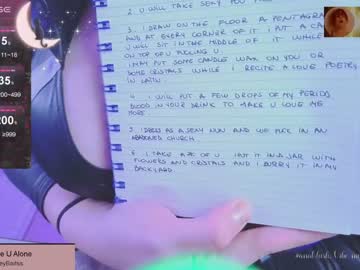 2. U WILL TAKE SEXY
3. I DRAW ON THE FLOOR A PENTAGRA
AND AT EVERY CORNER OF IT I PUT A CA
U WILL SIT IN THE MIDDLE OF IT WHILE
ON TOP OF U
I MAY PUT SOME CANDLE WAX ON YOU OR
SOME CRYSTALS WHILE I RECITE A LOVE POETRY
IN LATIN.
4. I WILL PUT A FEW DROPS OF MY PERIOD
BLOOD IN YOUR DRINK TO MAKE U LOVE ME
MORE.
5. I DRESS AS A SEXY NUN AND WE FUCK IN AN
ABANDONED CHURCH.
6. I TAKE A OF U PUT IT IN A JAR WITH
FLOWERS AND CRYSTALS AND I BURRY IT IN MY
BACKYARD.
5
11~16
35
200~499
200
≥999
e U Alone